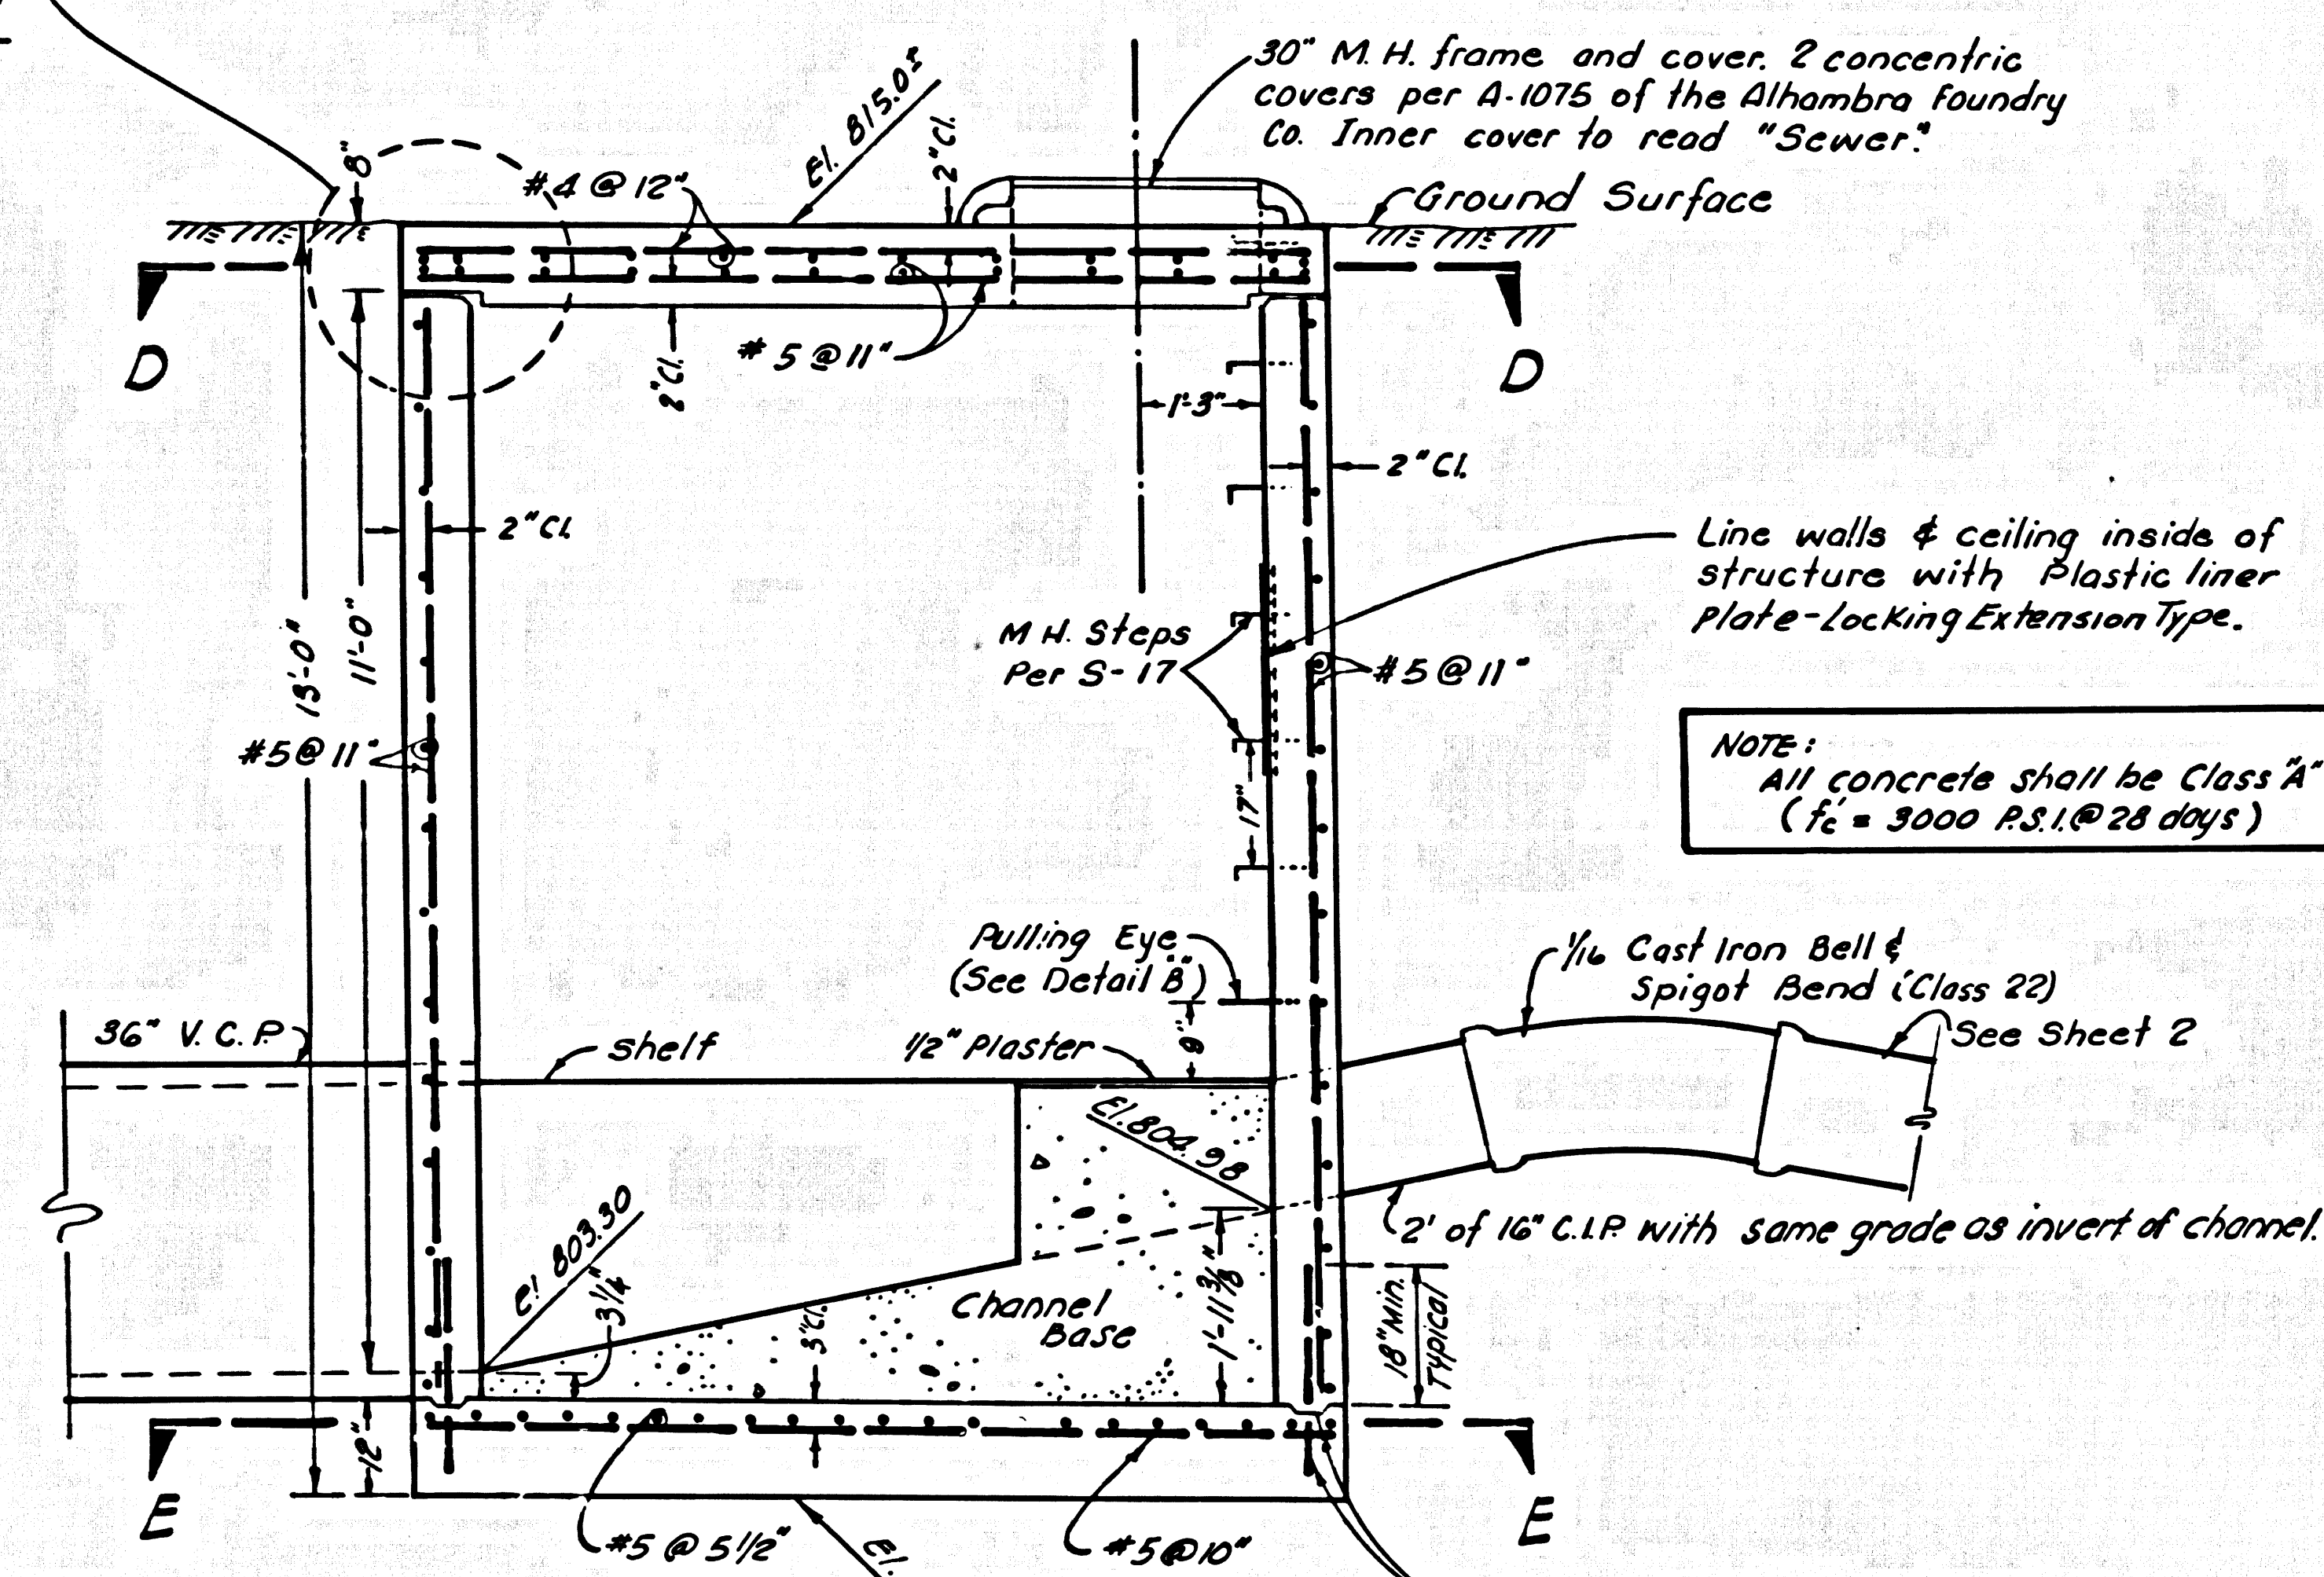 30" M. H. frame and cover. 2 concentric
covers per A-1075 of the Alhambra Foundry
Co. Inner cover to read "Sewer."
Ground Surface
El. 815.0±
2" Cl.
8"
#4 @ 12"
D
D
#5 @ 11"
2" Cl.
1'-3"
2" Cl.
2" Cl.
Line walls & ceiling inside of
structure with Plastic liner
Plate-Locking Extension Type.
13'-0"
11'-0"
M H. Steps
Per S-17
#5 @ 11"
#5 @ 11"
17"
NOTE:
All concrete shall be Class "A"
(f'c = 3000 P.S.I. @ 28 days)
Pulling Eye
(See Detail "B")
9"
1/16 Cast Iron Bell &
Spigot Bend (Class 22)
See Sheet 2
36" V. C. P.
shelf
1/2" Plaster
El. 804.98
2' of 16" C.I.P. with same grade as invert of channel.
El 803.30
3 1/4"
3" Cl.
Channel
Base
1'-11 3/8"
18" Min.
Typical
12"
E
E
#5 @ 5 1/2"
El.
#5 @ 10"